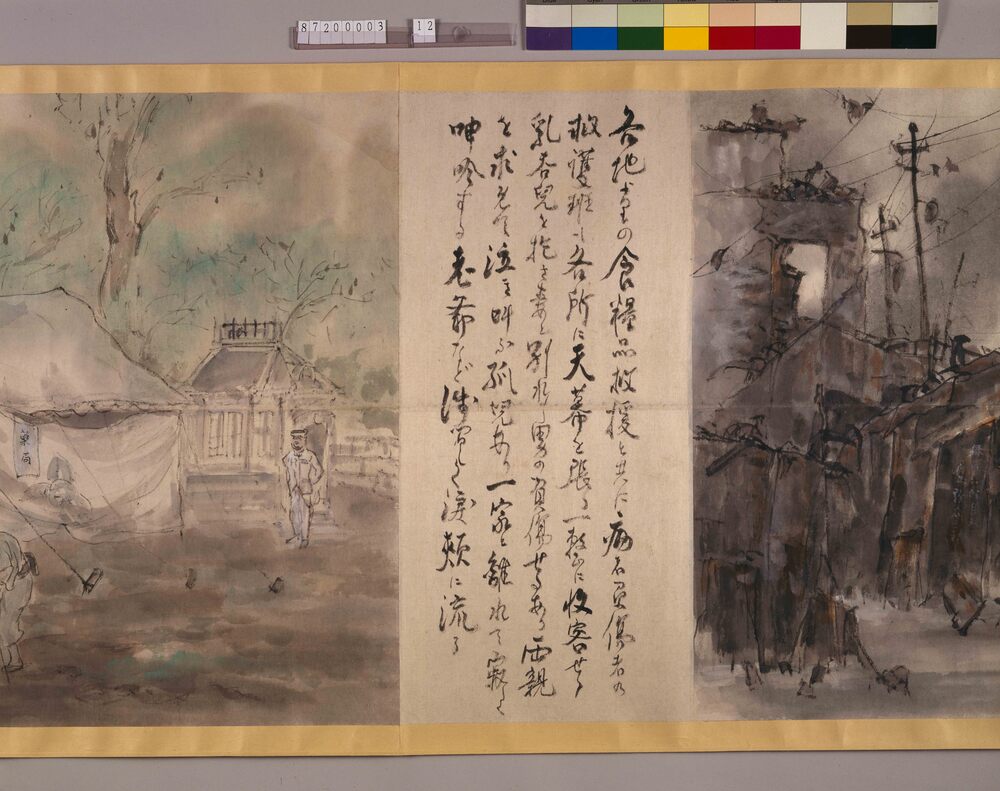 各地よりの食糧品救援と共に病者負傷者の
救護班も各所に天幕を張る一教山に収容せる
乳呑児を抱き妻と別れし男の負傷せるあり両親
を求めて泣き叫ぶ孤児あり一家と離れて寂しく
呻吟する老爺など 涙頬に流る
薬局
87200003 12